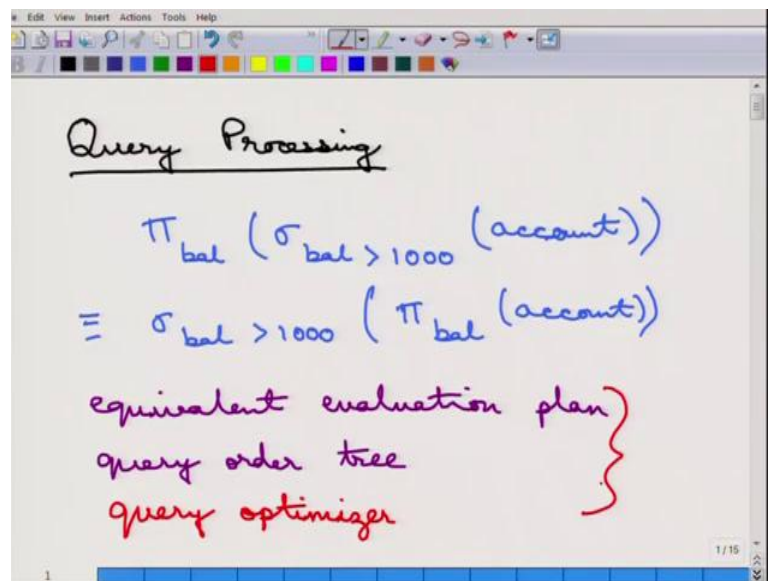 e Edit View Insert Actions Tools Help
B I
Query Processing
π bal (σ bal > 1000 (account))
≡ σ bal > 1000 (π bal (account))
equivalent evaluation plan
query order tree
query optimizer
1 / 15
1